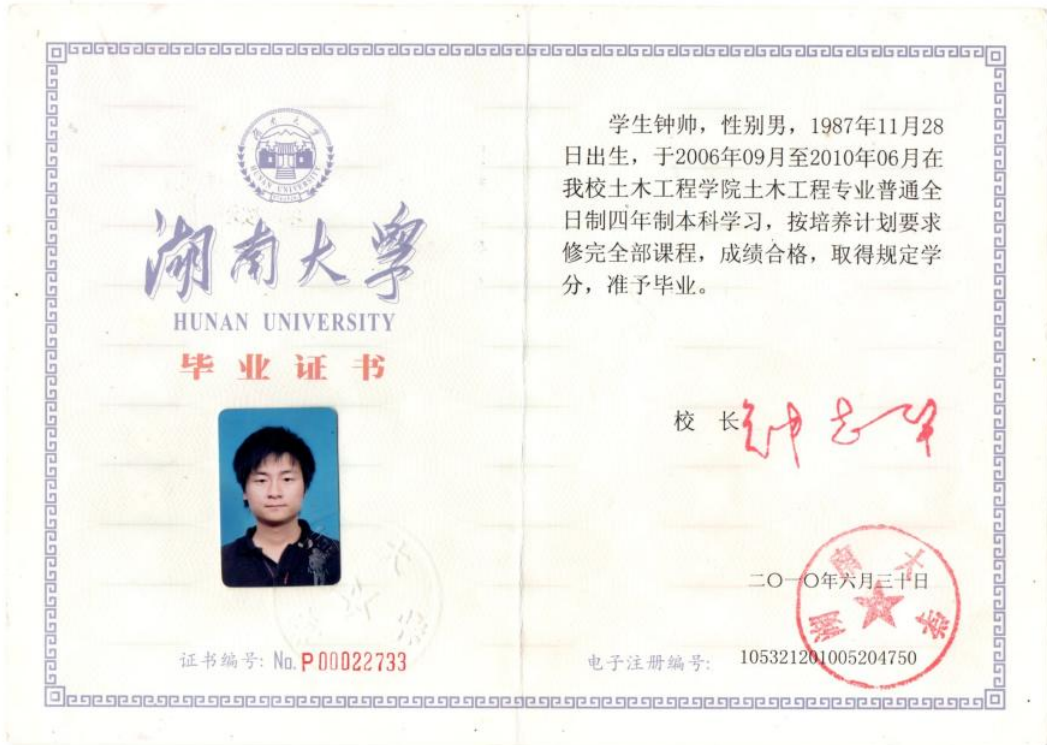 湖南大学
HUNAN UNIVERSITY
湖南大學
HUNAN UNIVERSITY
毕业证书
证书编号: No. P00022733
学生钟帅，性别男，1987年11月28
日出生，于2006年09月至2010年06月在
我校土木工程学院土木工程专业普通全
日制四年制本科学习，按培养计划要求
修完全部课程，成绩合格，取得规定学
分，准予毕业。
校 长 钟志华
二〇一〇年六月三十日
湖南大学
电子注册编号: 105321201005204750